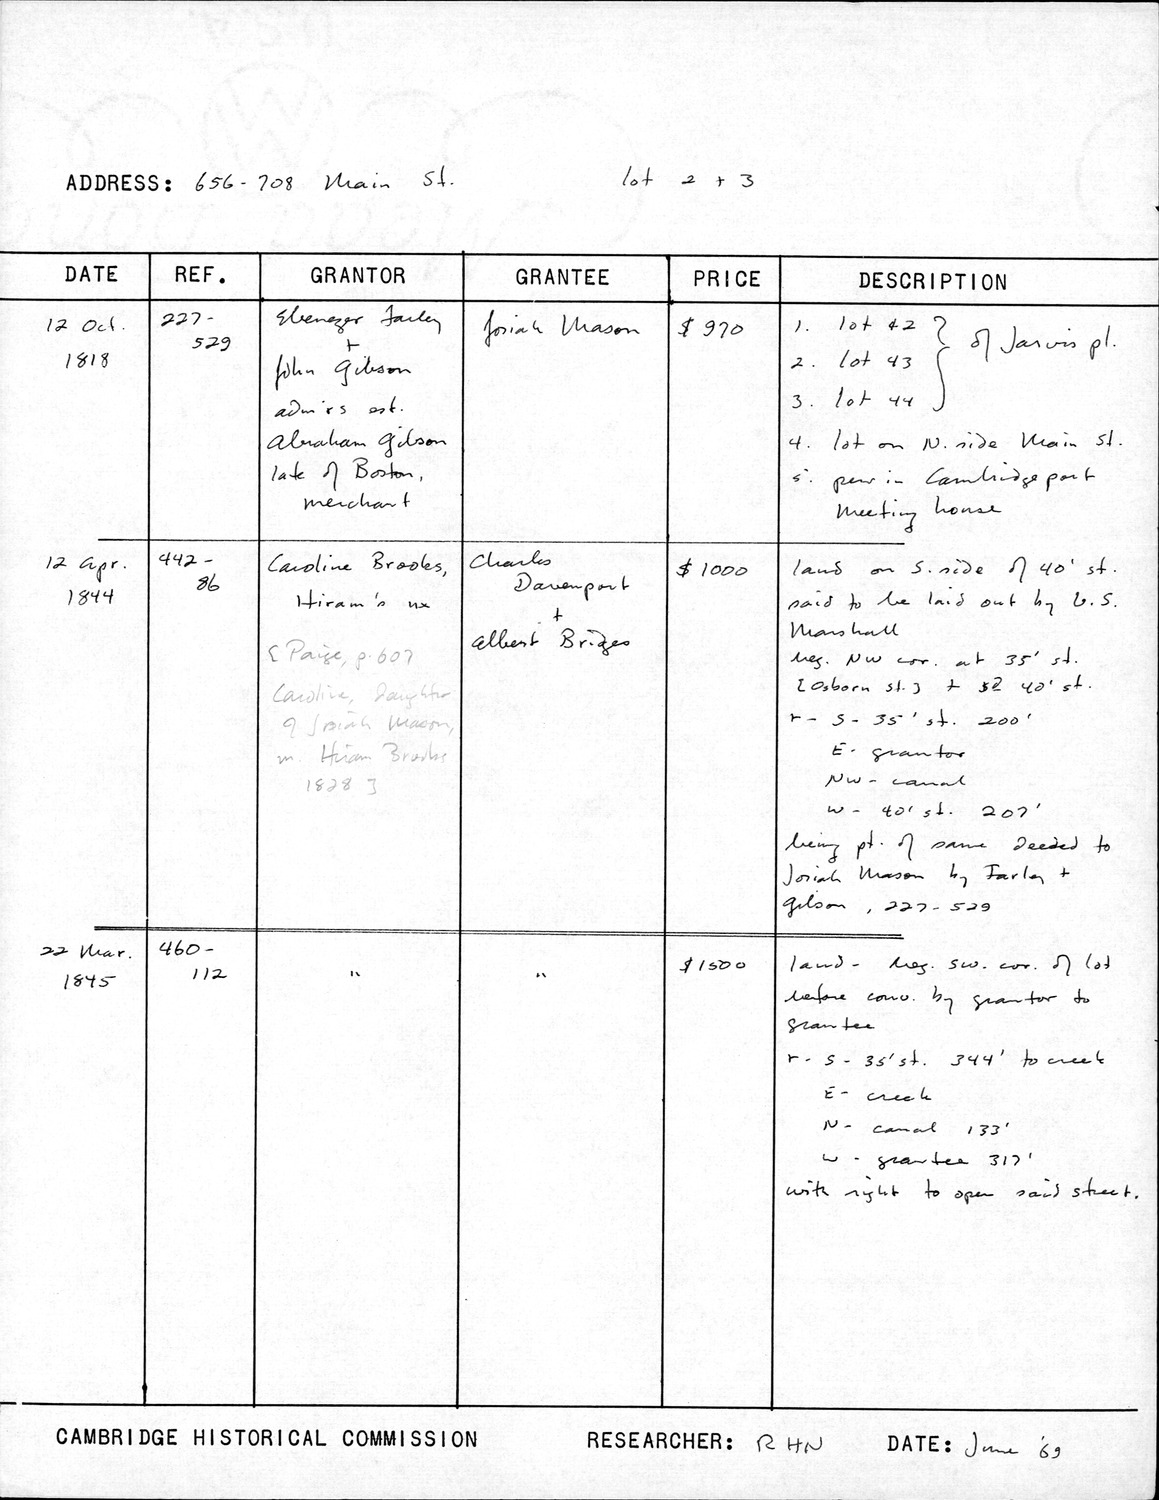 ADDRESS: 656-708 Main St. lot 2 + 3
DATE REF. GRANTOR GRANTEE PRICE DESCRIPTION
12 Oct.
1818
227-
529
Ebenezer Farley
+
John Gibson
adm'rs est.
Abraham Gibson
late of Boston,
merchant
Josiah Mason
$ 970
1. lot 42
2. lot 43
3. lot 44
} of Jarvis pl.
4. lot on N. side Main St.
5. pew in Cambridgeport
Meeting house
12 Apr.
1844
442-
86
Caroline Brooks,
Hiram's ux
[ Paige, p. 607
Caroline, Daughter
of Josiah Mason,
m. Hiram Brooks
1828 ]
Charles
Davenport
+
Albert Bridges
$ 1000
land on S. side of 40' st.
said to be laid out by U.S.
Marshall
beg. NW cor. at 35' st.
[Osborn st.] + 40' st.
r - S - 35' st. 200'
E - grantor
NW - canal
W - 40' st. 207'
being pt. of same deeded to
Josiah Mason by Farley +
Gibson, 227-529
22 Mar.
1845
460-
112
"
"
$ 1500
land - beg. SW. cor. of lot
before conv. by grantor to
grantee
r - S - 35' st. 344' to creek
E - creek
N - canal 133'
W - grantee 317'
with right to open said street.
CAMBRIDGE HISTORICAL COMMISSION RESEARCHER: RHN DATE: June '69